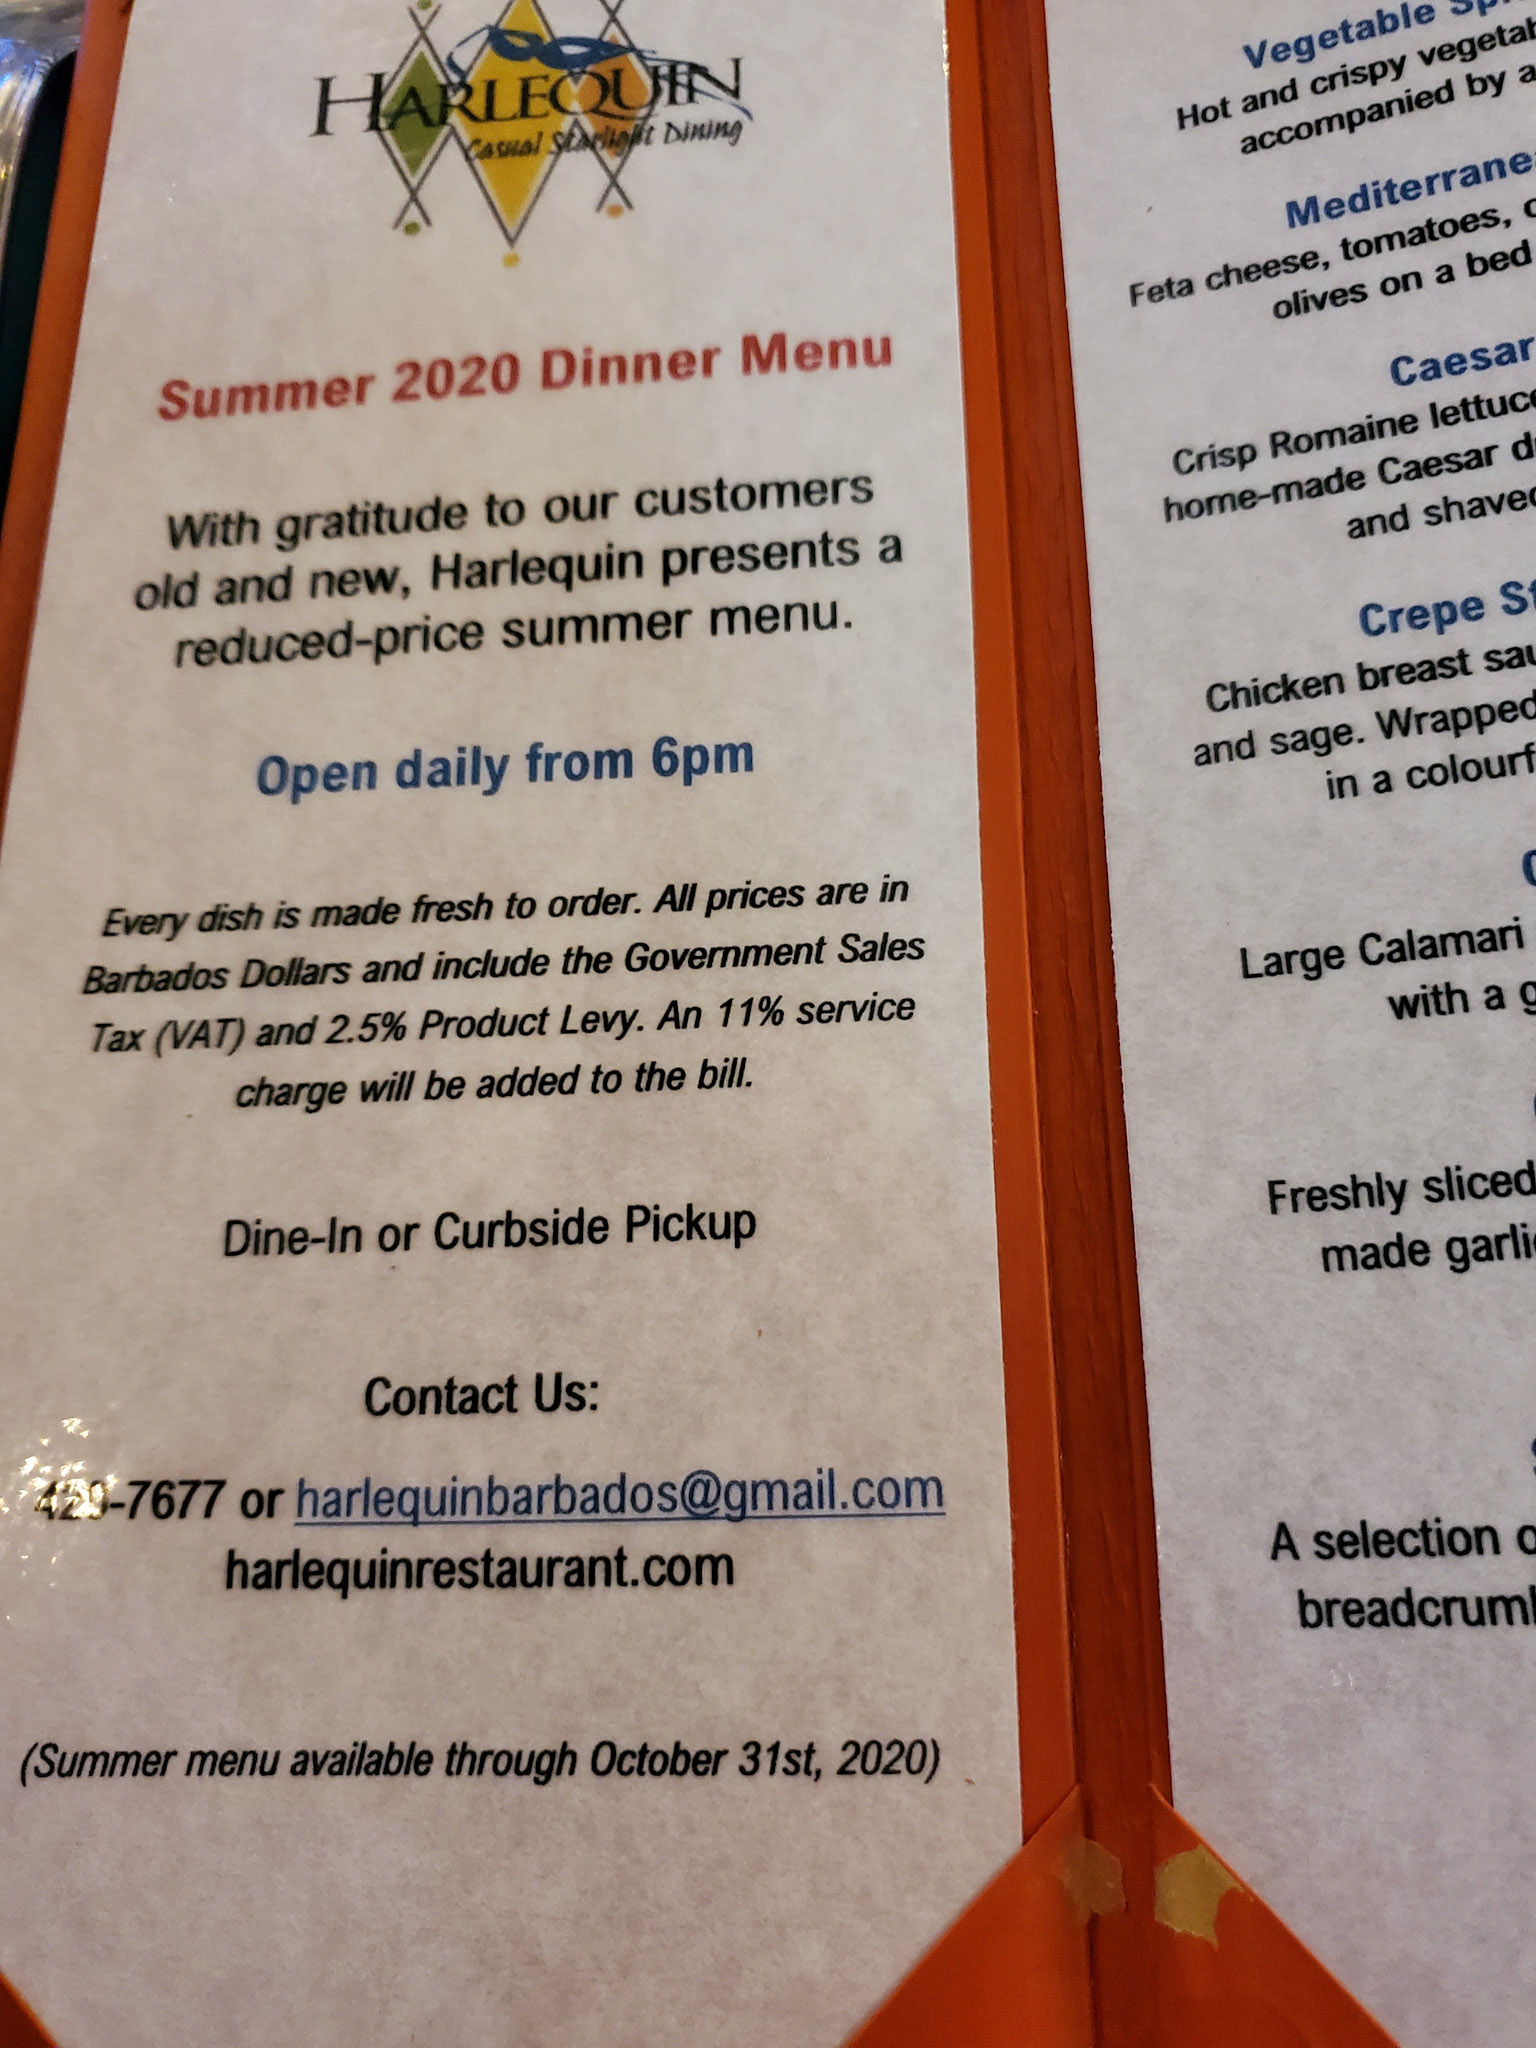 HARLEQUIN
Casual Starlight Dining
Summer 2020 Dinner Menu
With gratitude to our customers
old and new, Harlequin presents a
reduced-price summer menu.
Open daily from 6pm
Every dish is made fresh to order. All prices are in
Barbados Dollars and include the Government Sales
Tax (VAT) and 2.5% Product Levy. An 11% service
charge will be added to the bill.
Dine-In or Curbside Pickup
Contact Us:
420-7677 or harlequinbarbados@gmail.com
harlequinrestaurant.com
(Summer menu available through October 31st, 2020)
Vegetable
Hot and crispy
accompanied by a
Feta cheese, tomatoes,
olives on a bed
Caesar
Crisp Romaine lettuce
home-made Caesar
and shaved
Crepe
Chicken breast
and sage. Wrapped
in a
Large Calamari
with a
Freshly sliced
made
A selection